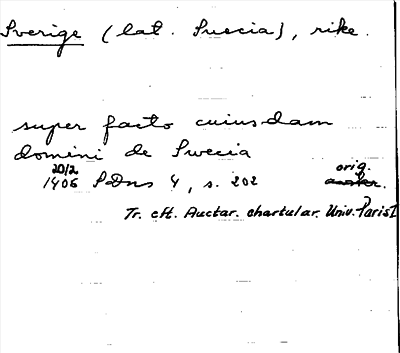 Sverige (lat. Suecia), rike.
super facto cuiusdam
domini de Swecia
20/2 orig.
1406 SDns 4, s. 202
Tr. eft. Auctar. chartular. Univ. Paris I